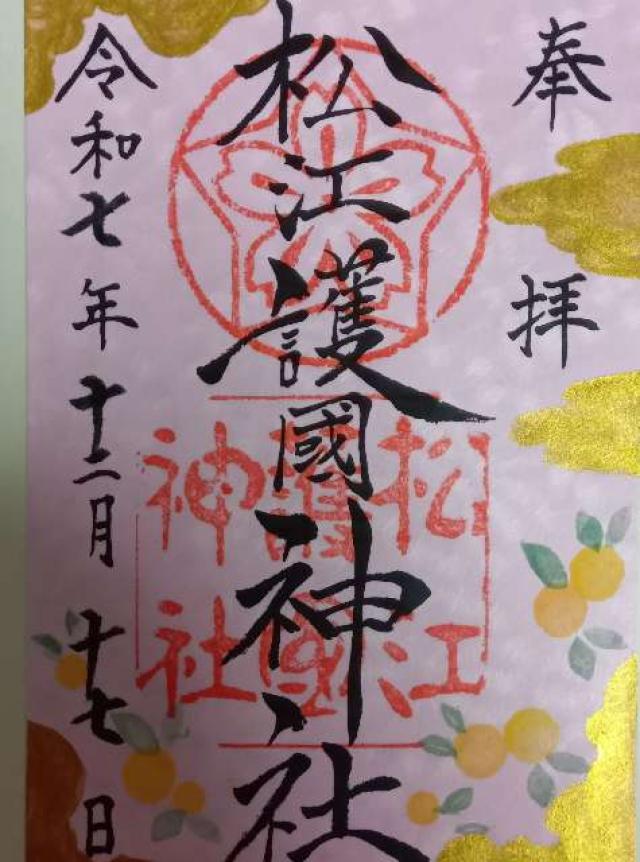 奉拝
松江護國神社
松江
護國
神社
令和七年十二月十七日